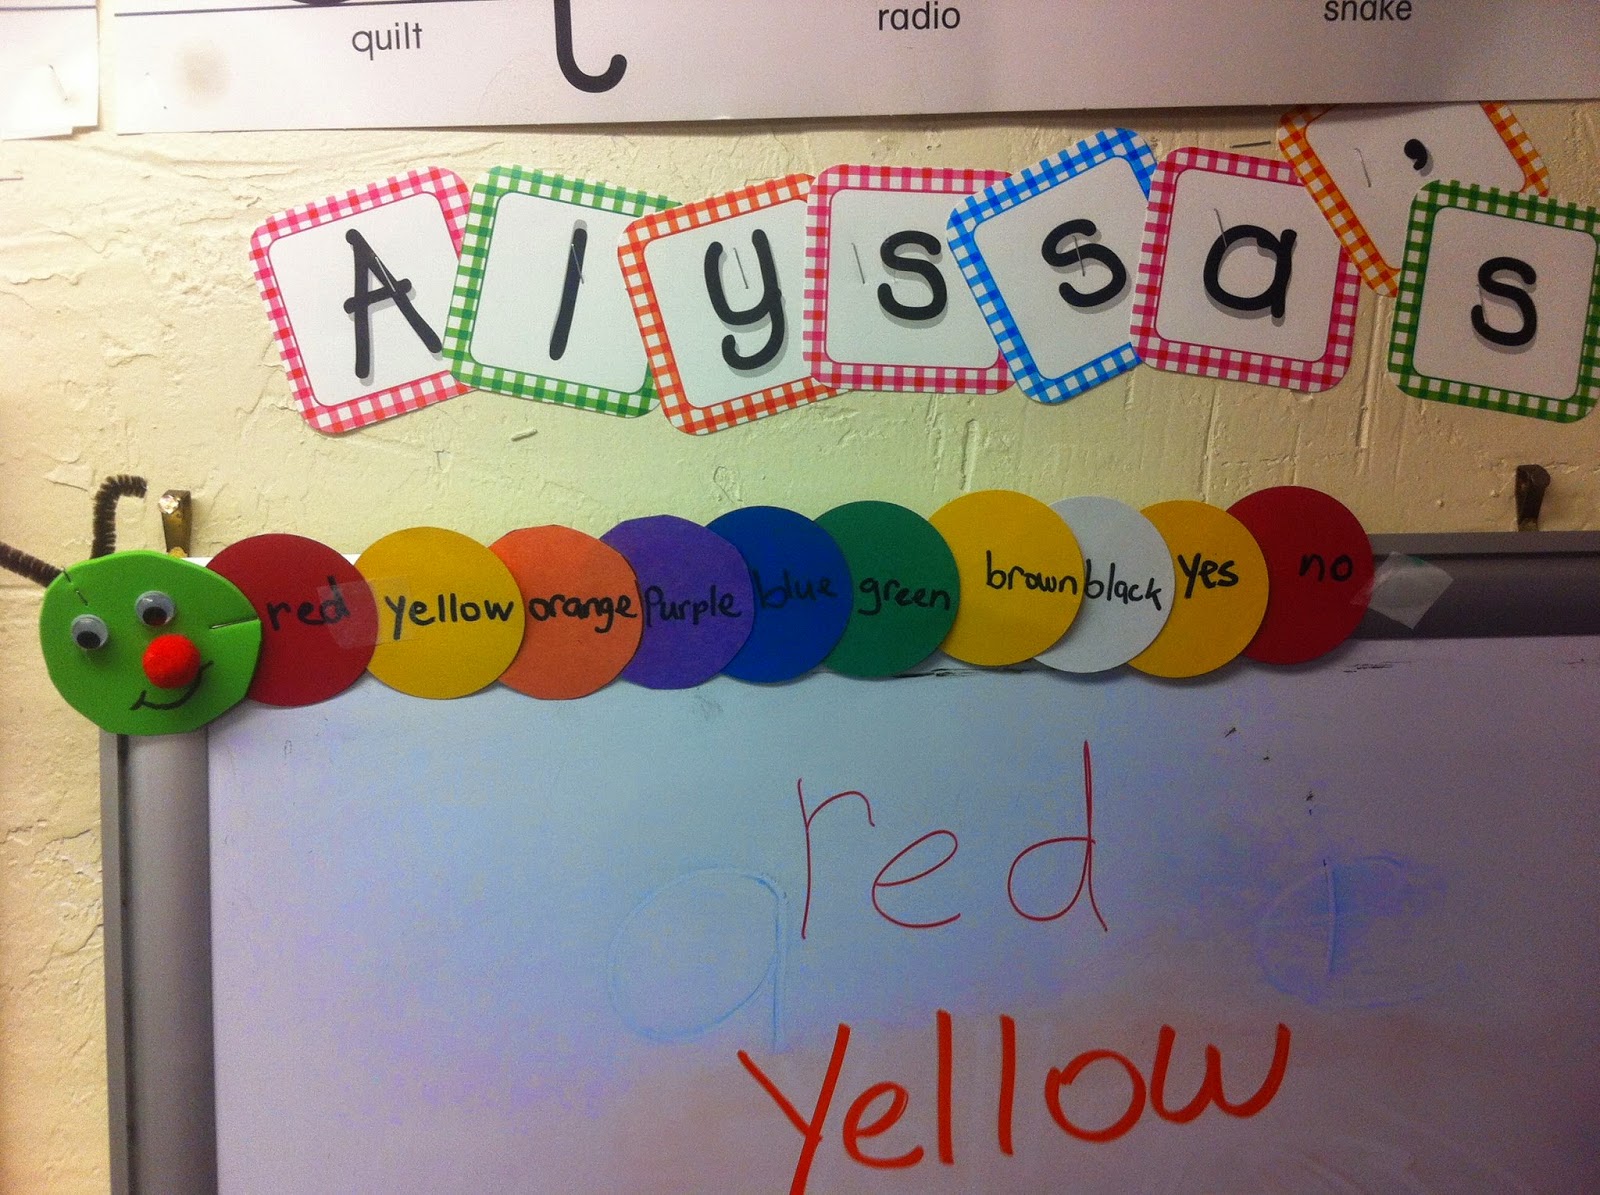 quilt radio snake
Alyssa's
red yellow orange Purple blue green brown black yes no
red
yellow